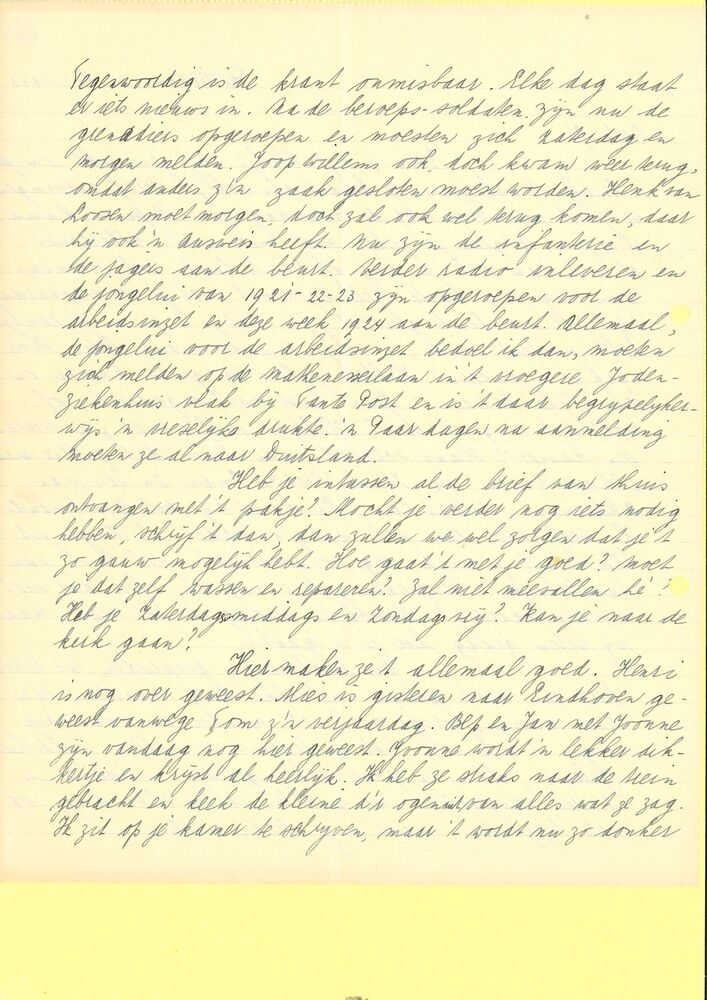 Tegenwoordig is de krant onmisbaar. Elke dag staat
er iets nieuws in. Na de beroeps-soldaten zijn nu de
grenadiers opgeroepen en moesten zich Zaterdag en
morgen melden. Joop Willems ook, doch kwam weer terug,
omdat anders z'n zaak gesloten moest worden. Henk van
Loosen moet morgen, doch zal ook wel terug komen, daar
hij ook 'n Ausweis heeft. Nu zijn de infanterie en
de jagers aan de beurt. Verder radio inleveren en
de jongelui van 1921-22-23 zijn opgeroepen voor de
arbeidsinzet en deze week 1924 aan de beurt. Allemaal,
de jongelui voor de arbeidsinzet bedoel ik dan, moeten
zich melden op de Mathenesserlaan in 't vroegere Joden-
ziekenhuis vlak bij Tante Post en is 't daar begrijpelijker-
wijs 'n vreselijke drukte. 'n Paar dagen na aanmelding
moeten ze al naar Duitsland.
Heb je intussen al de brief van thuis
ontvangen met 't pakje? Mocht je verder nog iets nodig
hebben, schrijf 't dan, dan zullen we wel zorgen dat je 't
zo gauw mogelijk hebt. Hoe gaat 't met je goed? Moet
je dat zelf wassen en repareren? Zal niet meevallen hè?
Heb je Zaterdagsmiddags en Zondags vrij? Kan je naar de
kerk gaan?
Hier maken ze 't allemaal goed. Henri
is nog over geweest. Mies is gisteren naar Eindhoven ge-
weest vanwege Tom z'n verjaardag. Bep en Jan met Yvonne
zijn vandaag nog hier geweest. Yvonne wordt 'n lekker dik-
kertje en krijst al heerlijk. Ik heb ze straks naar de trein
gebracht en keek de kleine d'r ogen uit van alles wat ze zag.
Ik zit op je kamer te schrijven, maar 't wordt nu zo donker